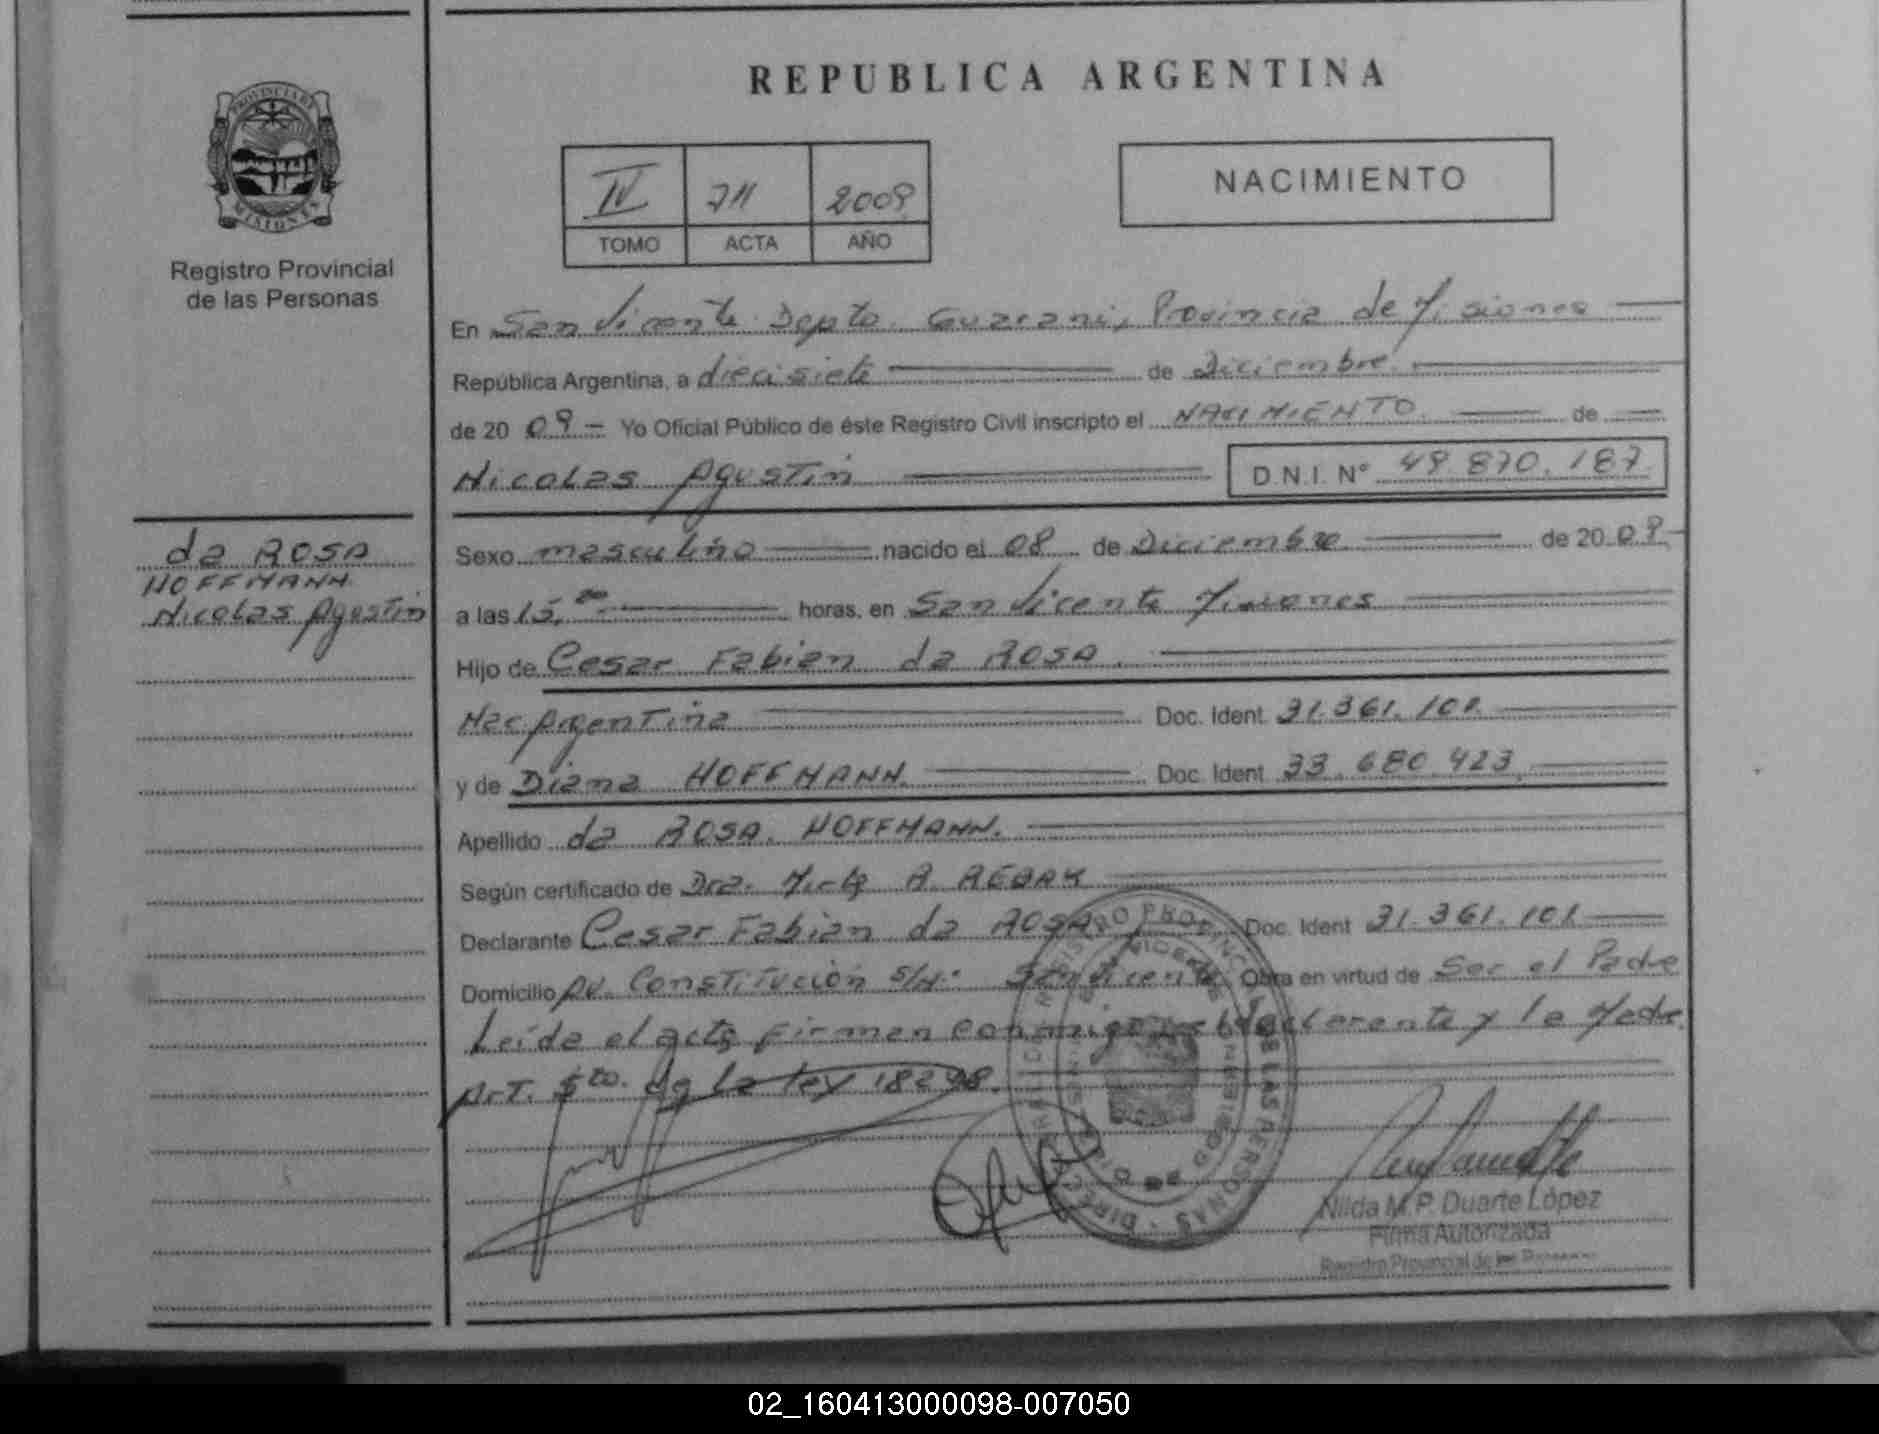 REPUBLICA ARGENTINA
PROVINCIA DE
MISIONES
Registro Provincial
de las Personas
IV 711 2009
TOMO ACTA AÑO
NACIMIENTO
En San Vicente Depto. Guarani, Provincia de Misiones
República Argentina, a diecisiete de Diciembre.
de 20 09 - Yo Oficial Público de éste Registro Civil inscripto el NACIMIENTO de
Nicolas Agustin D.N.I. Nº 49.870.187.
da ROSA
HOFFMANN
Nicolas Agustin
Sexo masculino nacido el 08 de Diciembre de 20 09.-
a las 15,00 horas, en San Vicente Misiones
Hijo de Cesar Fabian da ROSA.
Nac. Argentina Doc. Ident. 31.361.101.
y de Diana HOFFMANN. Doc. Ident. 33.680.423.
Apellido da ROSA. HOFFMANN.
Según certificado de Dra. A.
Declarante Cesar Fabian da ROSA. Doc. Ident. 31.361.101.
Domicilio Av. Constitución S/N: San Vicente Obra en virtud de Ser el Padre
Leída el acta firman conmigo el declarante y la Madre.
Art. 5to. de la ley 18248.
Nilda M.P. Duarte López
Firma Autorizada
Registro Provincial de las Personas
02_160413000098-007050